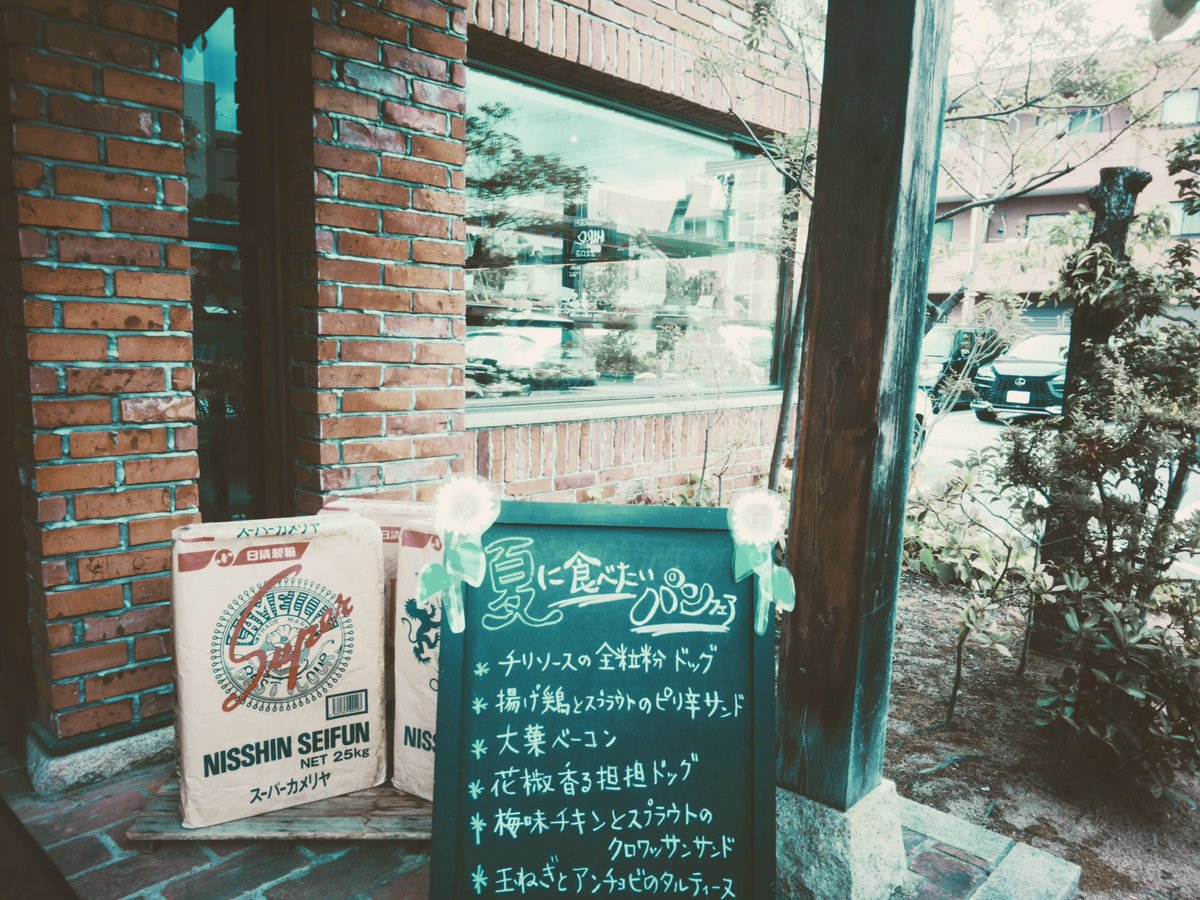 スーパーカメリヤ
日清製粉
CAMELLIA
TRADE MARK
Super
FLOUR
NISSHIN SEIFUN
NET 25kg
スーパーカメリヤ
NIS
夏に食べたいパンフェア
* チリソースの全粒粉ドッグ
* 揚げ鶏とスプラウトのピリ辛サンド
* 大葉ベーコン
* 花椒香る担担ドッグ
* 梅味チキンとスプラウトの
クロワッサンサンド
* 玉ねぎとアンチョビのタルティーヌ